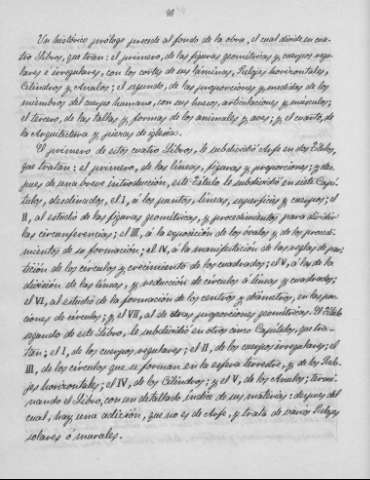 Un histórico prólogo precede al fondo de la obra, el cual divide en cua-
tro Libros, que tratan: el primero, de las figuras geométricas y cuerpos regu-
lares e irregulares, con los cortes de sus láminas, Relojes horizontales,
Cilindros y Anulos; el segundo, de las proporciones y medidas de los
miembros del cuerpo humano, con sus huesos, articulaciones y músculos;
el tercero, de las tallas y formas de los animales y aves; y el cuarto, de
la Arquitectura y piezas de iglesia.
El primero de estos cuatro Libros, le subdividió Arfe en dos Títulos,
que tratan: el primero, de las líneas, figuras y proporciones; y des-
pues de una breve introducción, este Título le subdividió en siete Capí-
tulos, destinados, el I, á los puntos, líneas, superficies y cuerpos; el
II, al estudio de las figuras geométricas, y procedimientos para dividir
las circunferencias; el III, á la exposición de los óvalos y de los procedi-
mientos de su formación; el IV, á la manifestación de las reglas de par-
tición de los círculos y crecimiento de los cuadrados; el V, á las de la
división de las líneas, y reducción de círculos á líneas y cuadrados;
el VI, al estudio de la formación de los centros y diámetros, en las por-
ciones de círculos; y el VII, al de otras proporciones geométricas. El Título
segundo de este Libro, le subdividió en otros cinco Capítulos, que tra-
tan; el I, de los cuerpos regulares; el II, de los cuerpos irregulares; el
III, de los círculos que se forman en la esfera terrestre, y de los Relo-
jes horizontales; el IV, de los Cilindros; y el V, de los Anulos; termi-
nando el Libro, con un detallado índice de sus materias: despues del
cual, hay una adición, que no es de Arfe, y trata de varios Relojes
solares ó murales.